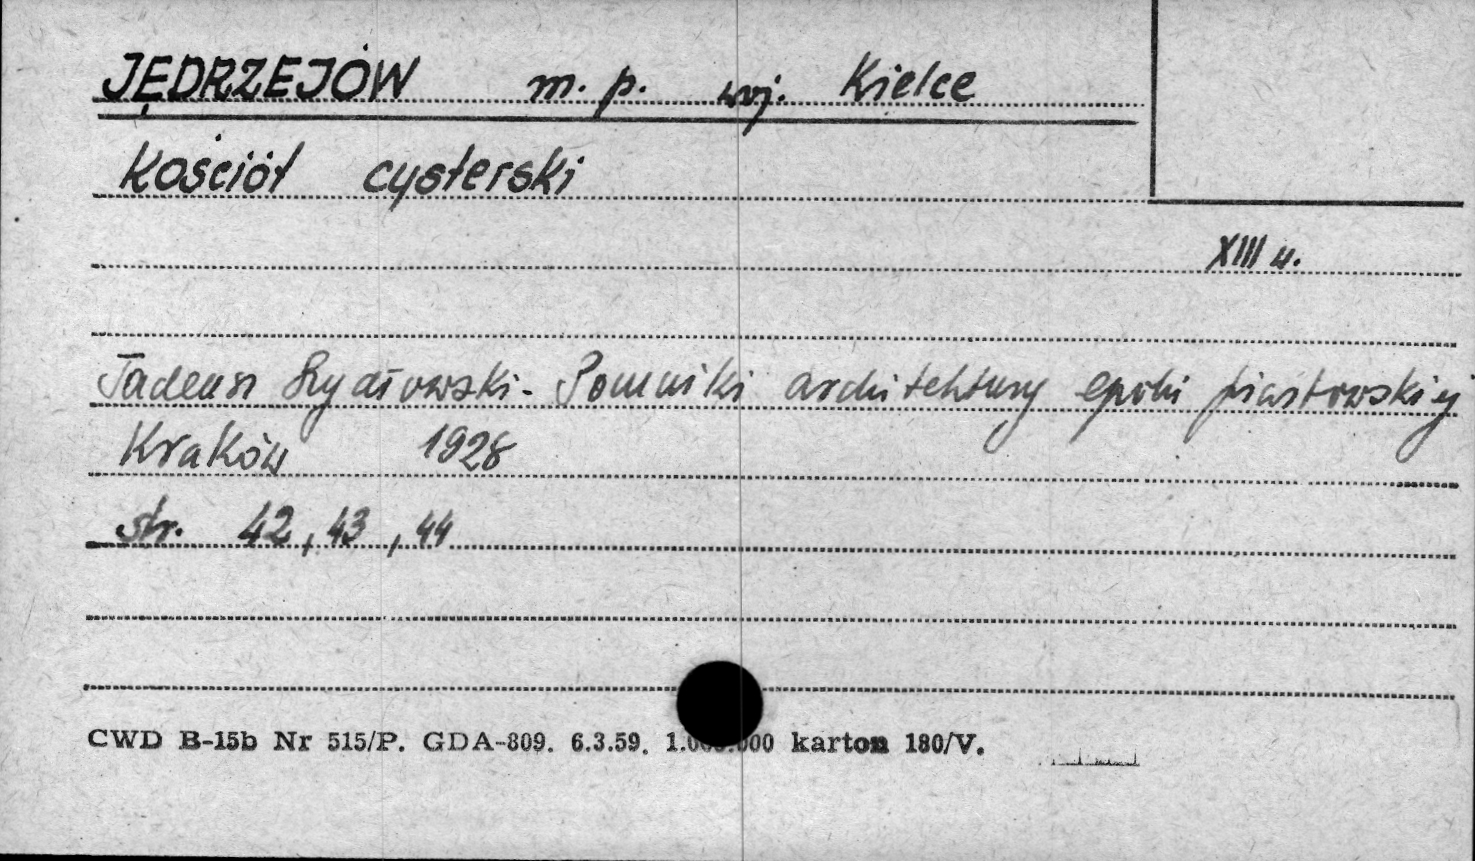 JĘDRZEJÓW m. p. woj. Kielce
Kościół cysterski
XIII w.
Tadeusz Szydłowski - Pomniki architektury epoki piastowskiej
Kraków 1928
str. 42, 43, 44
CWD B-15b Nr 515/P. GDA-809. 6.3.59. 1.000.000 karton 180/V.